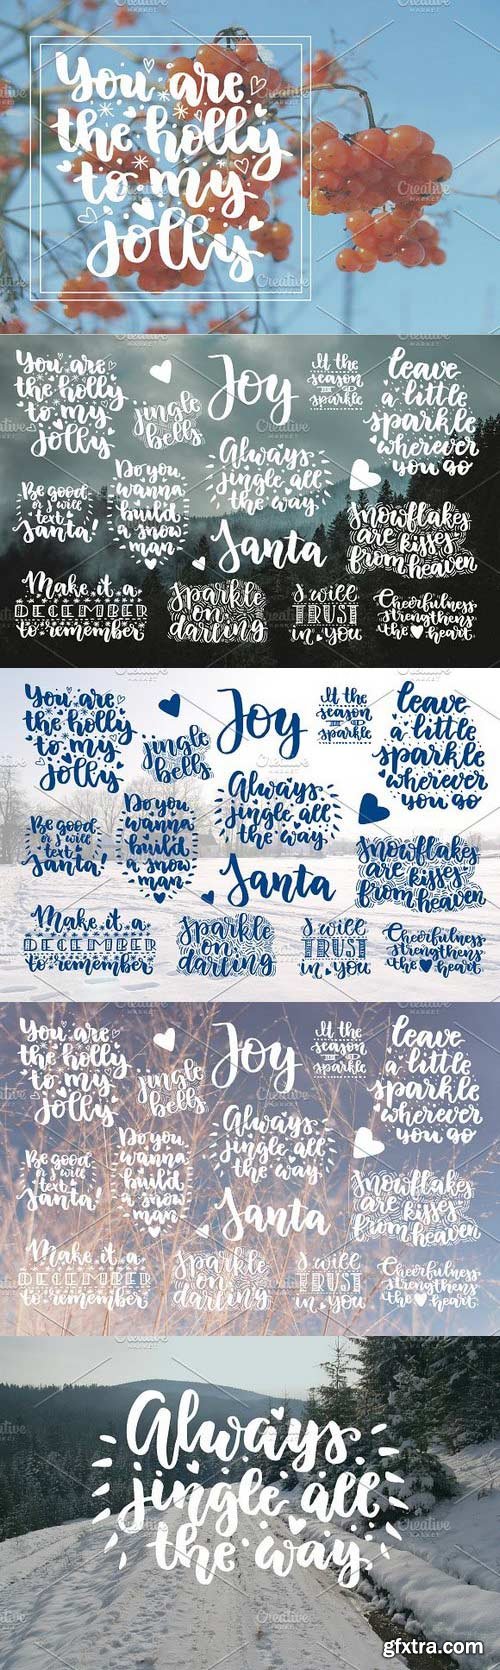 You are
the holly
to my
jolly
You are
the holly
to my
jolly
jingle
bells
Joy
It the
season
to
sparkle
leave
a little
sparkle
wherever
you go
Be good
or i will
text
Santa!
Do you
wanna
build
a snow
man
Always
jingle all
the way
Santa
Snowflakes
are kisses
from heaven
Make it a
DECEMBER
to remember
Sparkle
on
darling
I will
TRUST
in you
Cheerfulness
strengthens
the heart
You are
the holly
to my
jolly
jingle
bells
Joy
It the
season
to
sparkle
leave
a little
sparkle
wherever
you go
Be good
or i will
text
Santa!
Do you
wanna
build
a snow
man
Always
jingle all
the way
Santa
Snowflakes
are kisses
from heaven
Make it a
DECEMBER
to remember
Sparkle
on
darling
I will
TRUST
in you
Cheerfulness
strengthens
the heart
You are
the holly
to my
jolly
jingle
bells
Joy
It the
season
to
sparkle
leave
a little
sparkle
wherever
you go
Be good
or i will
text
Santa!
Do you
wanna
build
a snow
man
Always
jingle all
the way
Santa
Snowflakes
are kisses
from heaven
Make it a
DECEMBER
to remember
Sparkle
on
darling
I will
TRUST
in you
Cheerfulness
strengthens
the heart
Always
jingle all
the way
Creative
MARKET
gfxtra.com